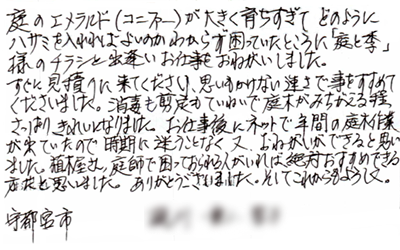 庭のエメラルド(コニファー)が大きく育ちすぎてどのように
ハサミを入れればよいのかわからず困っていたところに「庭と季」
様のチラシと出逢いお仕事をおねがいしました。
すぐに見積りに来てくださり、思いもかけない速さで事をすすめて
くださいました。消毒も剪定もていねいで庭木がみちがえる程、
さっぱりきれいになりました。お仕事後にネットで年間の庭木作業
が出ていたので時期に迷うことなく又、おねがいができると思い
ました。植木屋さん、庭師で困っておられる人がいれば絶対おすすめできる
方だと思いました。ありがとうございました。そしてこれからもよろしく。
宇都宮市